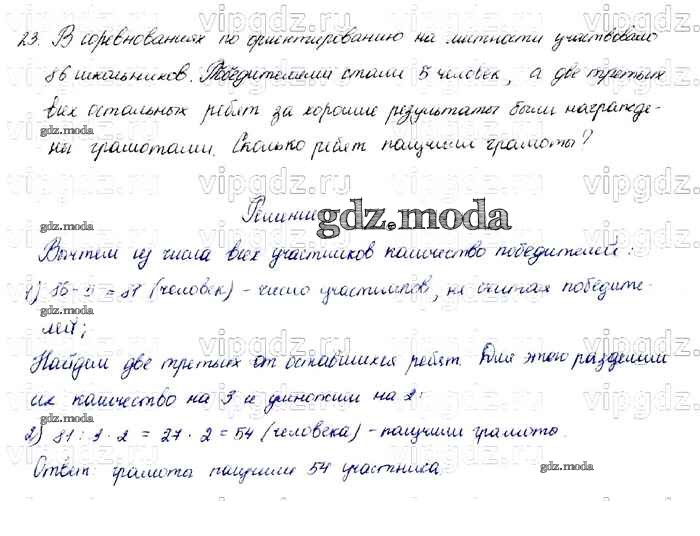 23. В соревнованиях по ориентированию на местности участвовало
86 школьников. Победителями стали 5 человек, а две третьих
всех остальных ребят за хорошие результаты были награжде-
gdz.moda
ны грамотами. Сколько ребят получили грамоты?
gdz.moda
Решение
gdz.moda
gdz.moda
Вычтем из числа всех участников количество победителей:
1) 86 - 5 = 81 (человек) - число участников, не считая победите-
лей;
Найдем две третьих от оставшихся ребят. Для этого разделим
их количество на 3 и умножим на 2:
gdz.moda
2) 81 : 3 · 2 = 27 · 2 = 54 (человека) - получили грамоты.
Ответ: грамоты получили 54 участника.
gdz.moda
vipgdz.ru